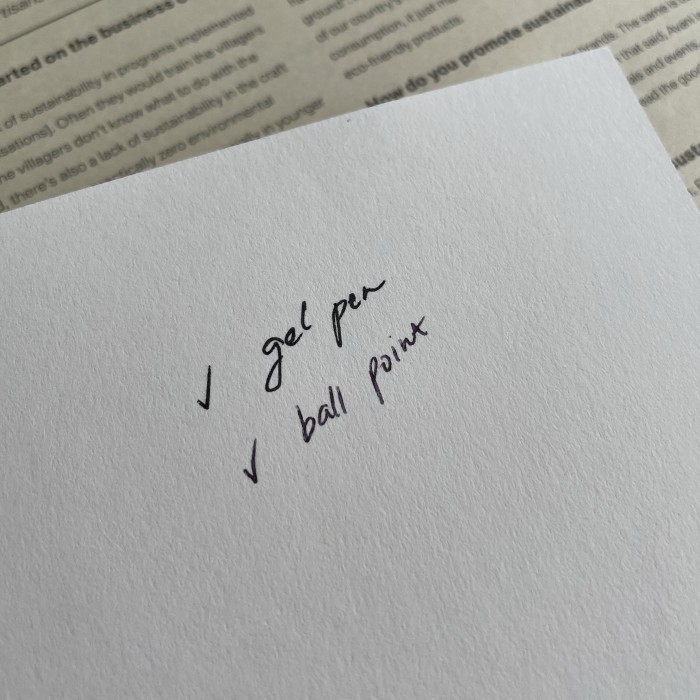 tisan
arted on the business
of sustainability in programs implemented
sations]. Often they would train the villagers
he villagers don't know what to do with the
, there's also a lack of sustainability in the craft
tically zero environmental
ally in younger
ground
of our country's
consumption, it just m
eco-friendly products.
How do you promote sustainab
brands. The same is
that said, Avan
als and even
ead the goo
sust
✓ gel pen
✓ ball point